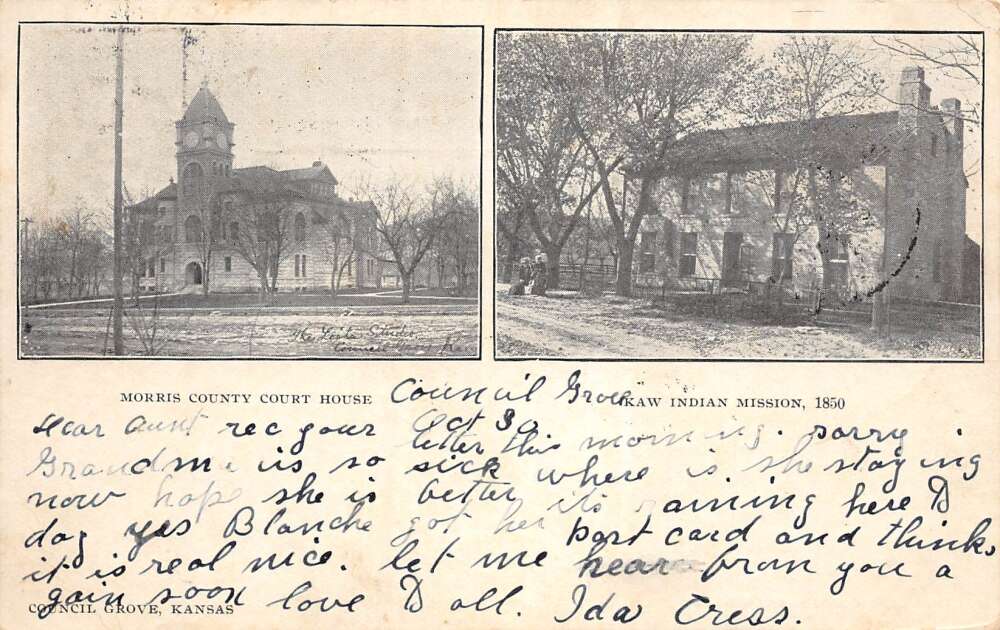 The Loota Studio
Council
MORRIS COUNTY COURT HOUSE
KAW INDIAN MISSION, 1850
Council Grove
Oct 30
Dear Aunt rec your letter this morning. sorry
Grandma is so sick where is she staying
now hope she is better its raining here to
day yes Blanche got her post card and thinks
it is real nice. let me hear from you a
gain soon love to all. Ida Cress.
COUNCIL GROVE, KANSAS